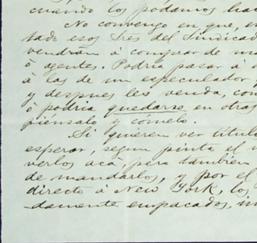 cuando los podamos
No convengo en que, en
tado esos Sres del Sindicad
vendran á comprar de ma
ó agentes. Podria pasar á
á las de un especulador
y despues les venda, con
ó podria quedarse en otras
piénsalo y
Si quieren ver titulo
esperar, segun pinte el
verlos acá, pero tambien
de mandarlos, y por el
directo á New York, los
damente empacados, in